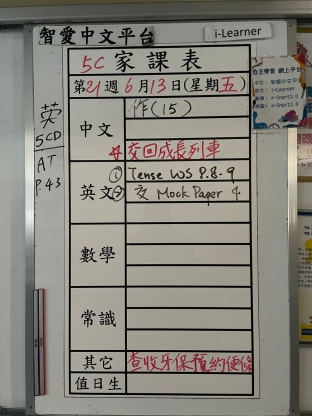 智愛中文平台
i-Learner
5C 家課表
第21週 6月13日(星期五)
中文
作(15)
交回成長列車
英文
① Tense WS P.8-9
② 交 Mock Paper 4
數學
常識
其它
查收牙保預約便條
值日生
英
5CD
AT
P.43
自主學習 網上平台